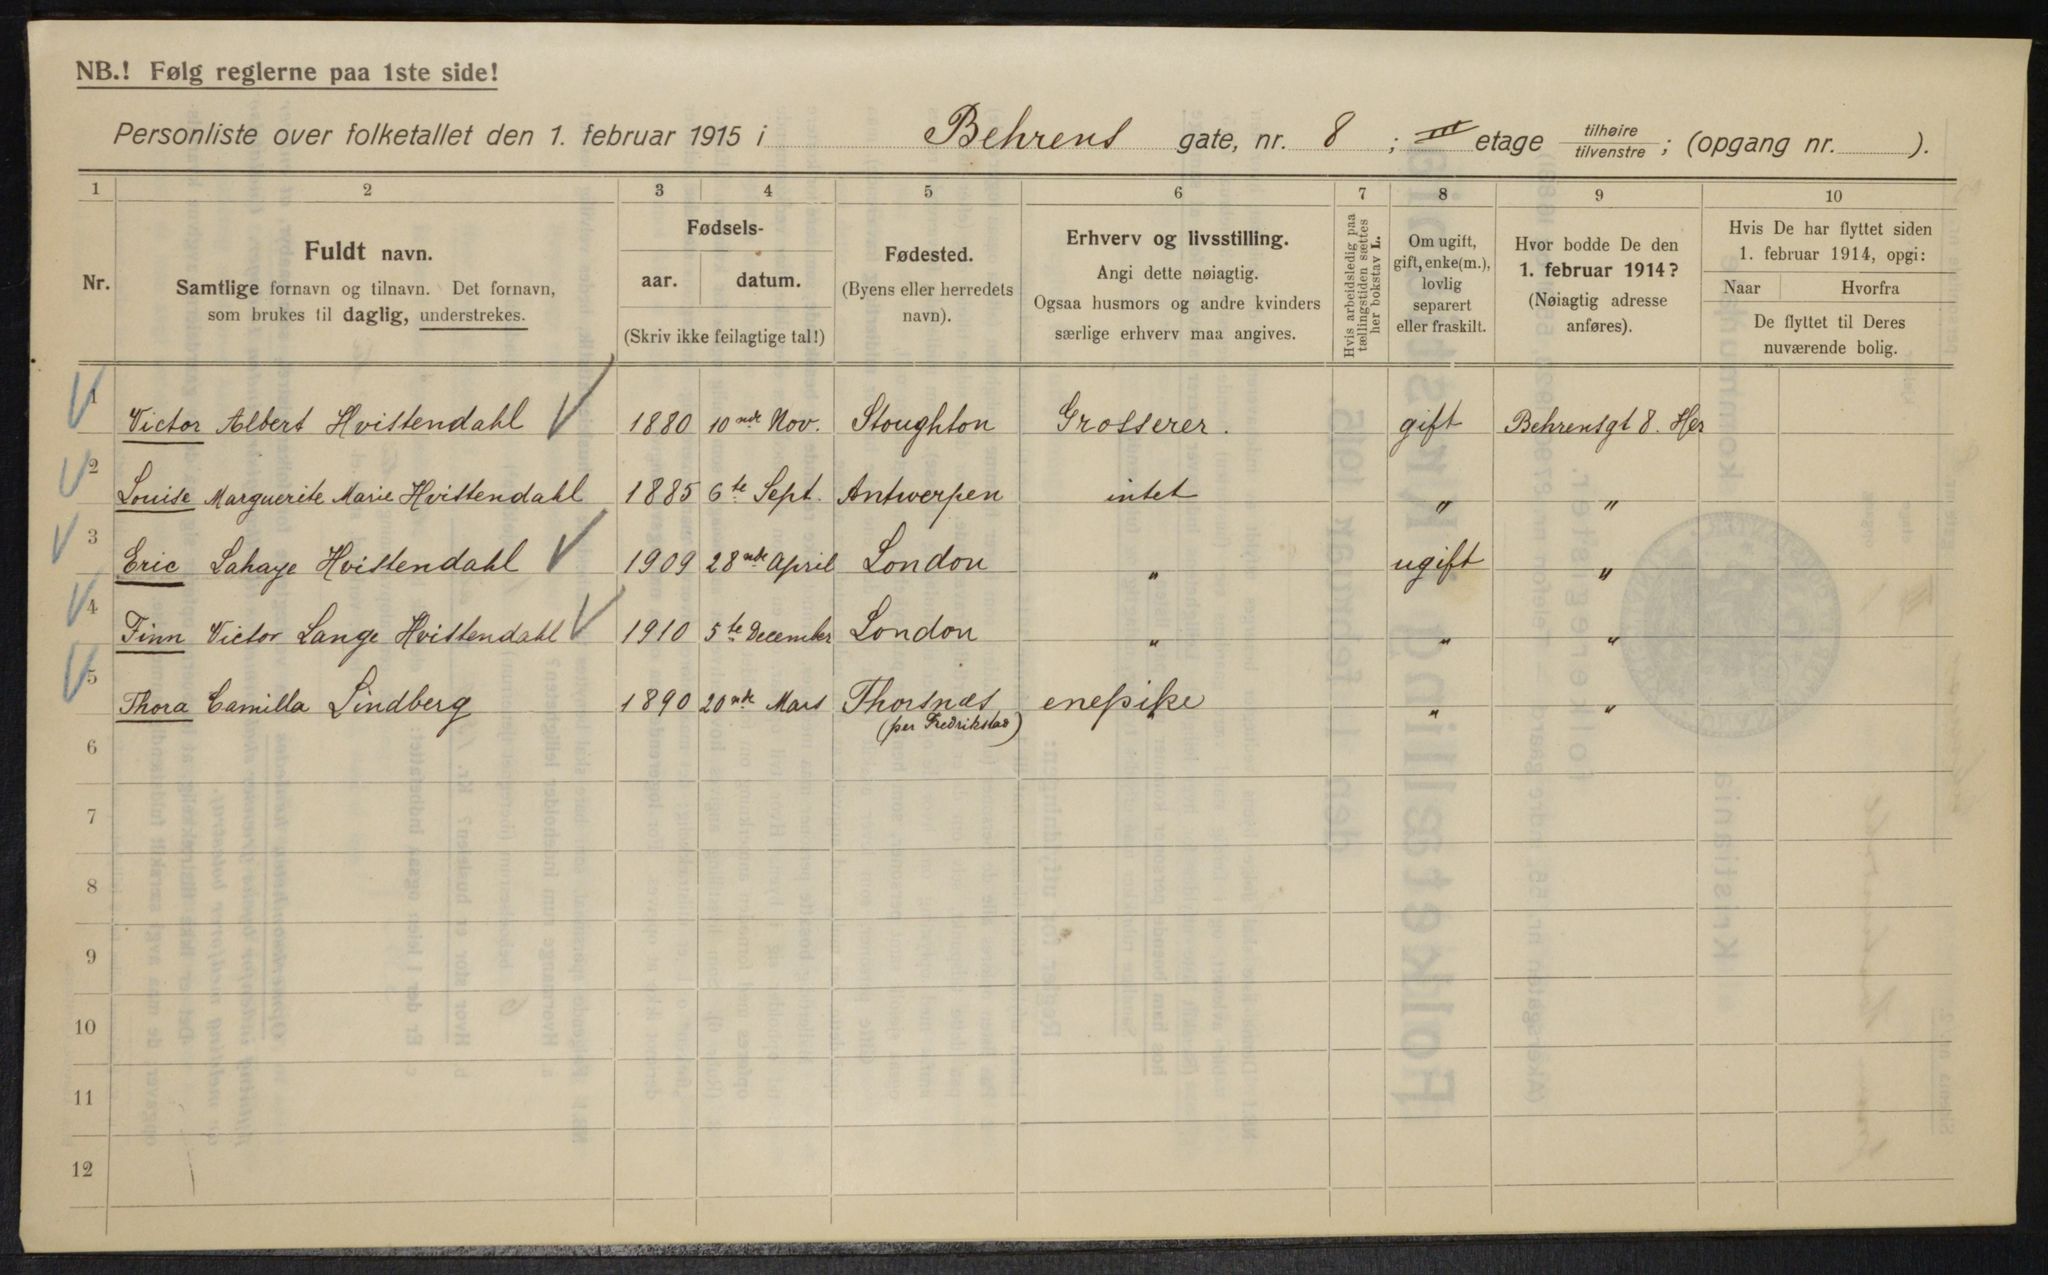 NB.! Følg reglerne paa 1ste side!
Personliste over folketallet den 1. februar 1915 i Behrens gate, nr. 8 ; III etage tilhøire / tilvenstre ; (opgang nr. ).
1 2 3 4 5 6 7 8 9 10
Nr.
Fuldt navn.
Samtlige fornavn og tilnavn. Det fornavn,
som brukes til daglig, understrekes.
Fødsels-
aar. datum.
(Skriv ikke feilagtige tal!)
Fødested.
(Byens eller herredets
navn).
Erhverv og livsstilling.
Angi dette nøiagtig.
Ogsaa husmors og andre kvinders
særlige erhverv maa angives.
Hvis arbeidsledig paa
tællingstiden sættes
her bokstav L.
Om ugift,
gift, enke(m.),
lovlig
separert
eller fraskilt.
Hvor bodde De den
1. februar 1914?
(Nøiagtig adresse
anføres).
Hvis De har flyttet siden
1. februar 1914, opgi:
Naar Hvorfra
De flyttet til Deres
nuværende bolig.
1 Victor Albert Hvistendahl 1880 10nde Nov. Stoughton Grosserer. gift Behrensgt 8. Her
2 Louise Marguerite Marie Hvistendahl 1885 6te Sept. Antwerpen intet " "
3 Eric Lahaye Hvistendahl 1909 28nde April London " ugift "
4 Finn Victor Lange Hvistendahl 1910 5te December London " " "
5 Thora Camilla Lindberg 1890 20nde Mars Thorsnæs enepike " "
(per Fredrikstad)
6
7
8
9
10
11
12